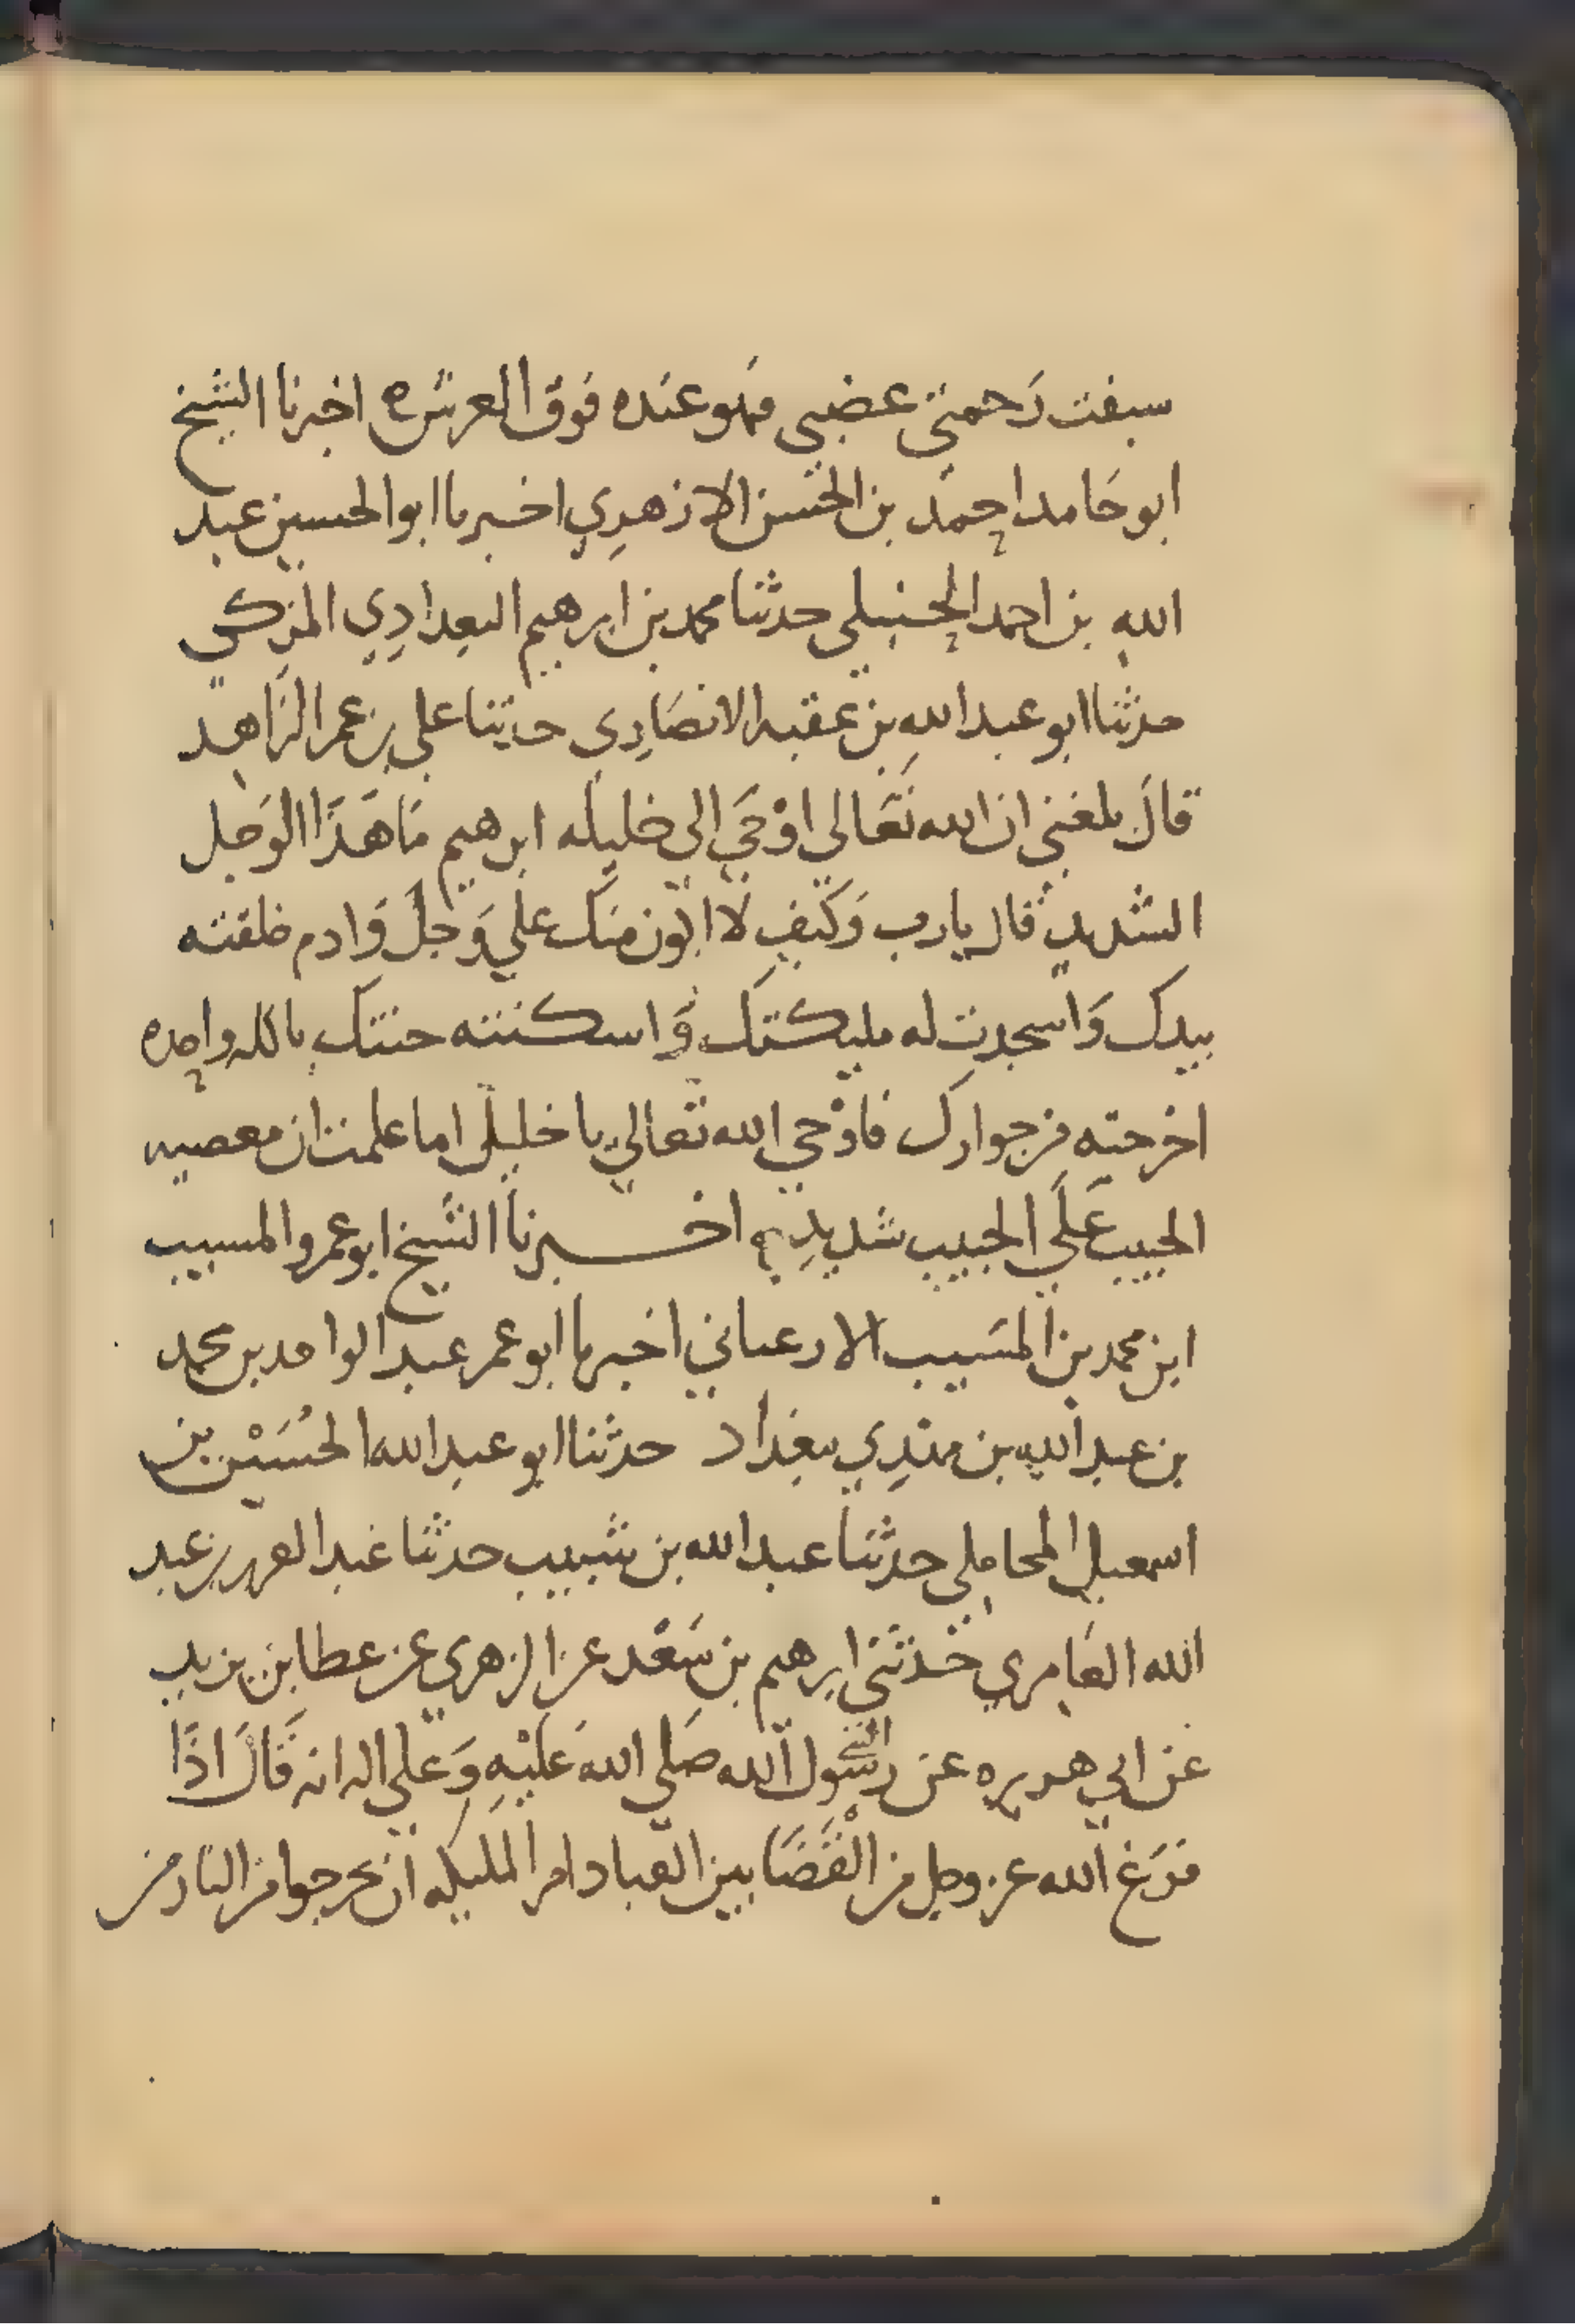 سبقت رَحمتي غضبي فهو عنده فوق العرش ه اخبرنا الشيخ
ابو حَامد احمد بن الحسن الازهرِي اخبرنا ابو الحسين عبد
الله بن احمد الحنبلي حدثنا محمد بن ابرهيم البغدادِي المزكي
حدثنا ابو عبد الله بن عقبه الانصَارِي حدثنا علي بن عمر الزاهد
قالَ بلغني ان الله تَعَالي اوْحَي الي خليله ابرهيم مَا هَذَا الوَجل
الشديد قال يا رب وَكَيف لا اكون منك علي وَجل وَادم خلقته
بيدك وَاسجدت له مليكتك وَاسكنته جنتك باكله واحده
اخرجته من جوارك فاوْحي الله تعَالي يا خليلي اما علمت ان معصيه
الحبيب عَلَي الحبيب شديدِه اخبرنا الشيخ ابو عمرو المسيب
ابن محمد بن المسَيب الارغياني اخبرنا ابو عمر عبد الواحد بن محمد
بن عبد الله بن مهدِي ببغداد حدثنا ابو عبد الله الحُسَيْن بن
اسمعيل المحاملي حدثنا عبد الله بن شبيب حدثنا عبد العزيز بن عبد
الله العَامري حَدثَني ابرهيم بن سَعْد عن الزهري عن عطا بن يزيد
عن ابي هريره عن رسول الله صَلي الله عَليْهِ وَعلي اله انه قَالَ اذَا
فرَغ الله عز وجل من الْقَضَا بين العباد امر المليكه ان يخرجوا من النار من